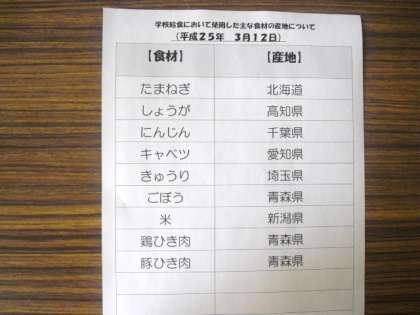 学校給食において使用した主な食材の産地について
（平成２５年　３月１２日）
【食材】　【産地】
たまねぎ　北海道
しょうが　高知県
にんじん　千葉県
キャベツ　愛知県
きゅうり　埼玉県
ごぼう　青森県
米　新潟県
鶏ひき肉　青森県
豚ひき肉　青森県